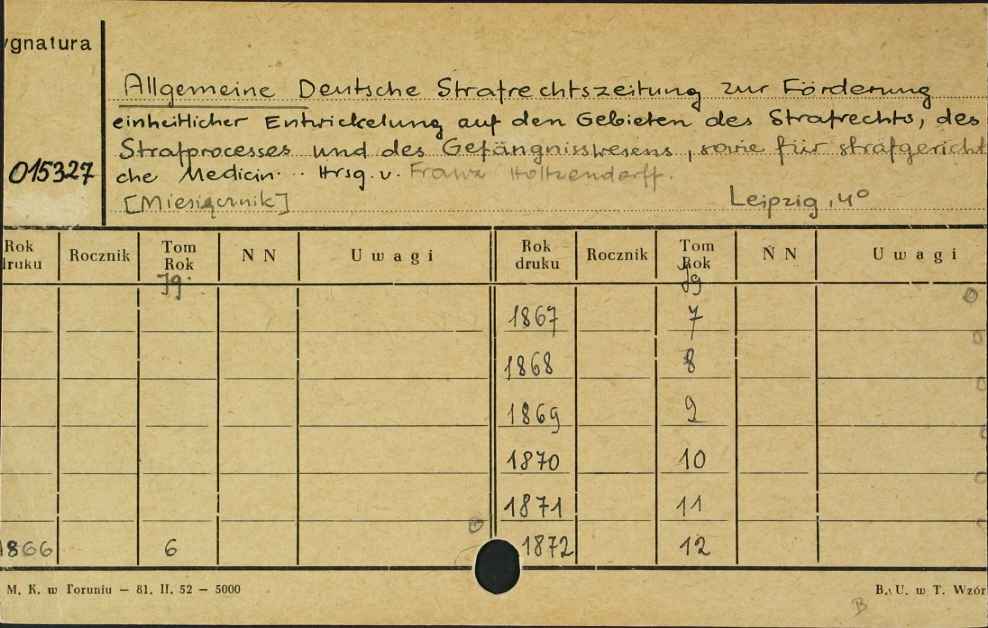 ygnatura
Allgemeine Deutsche Strafrechtszeitung zur Förderung
einheitlicher Entwickelung auf den Gebieten des Strafrechts, des
Strafprocesses und des Gefängnisswesens, sowie für strafgericht
015327
che Medicin... Hrsg. v. Franz Holtzendorff.
[Miesięcznik] Leipzig, 4°
Rok druku Rocznik Tom Rok N N Uwagi Rok druku Rocznik Tom Rok N N Uwagi
Jg. Jg
1867 7
1868 8
1869 9
1870 10
1871 11
1866 6 1872 12
M. K. w Toruniu — 81. II. 52 — 5000 B. U. w T. Wzór
B